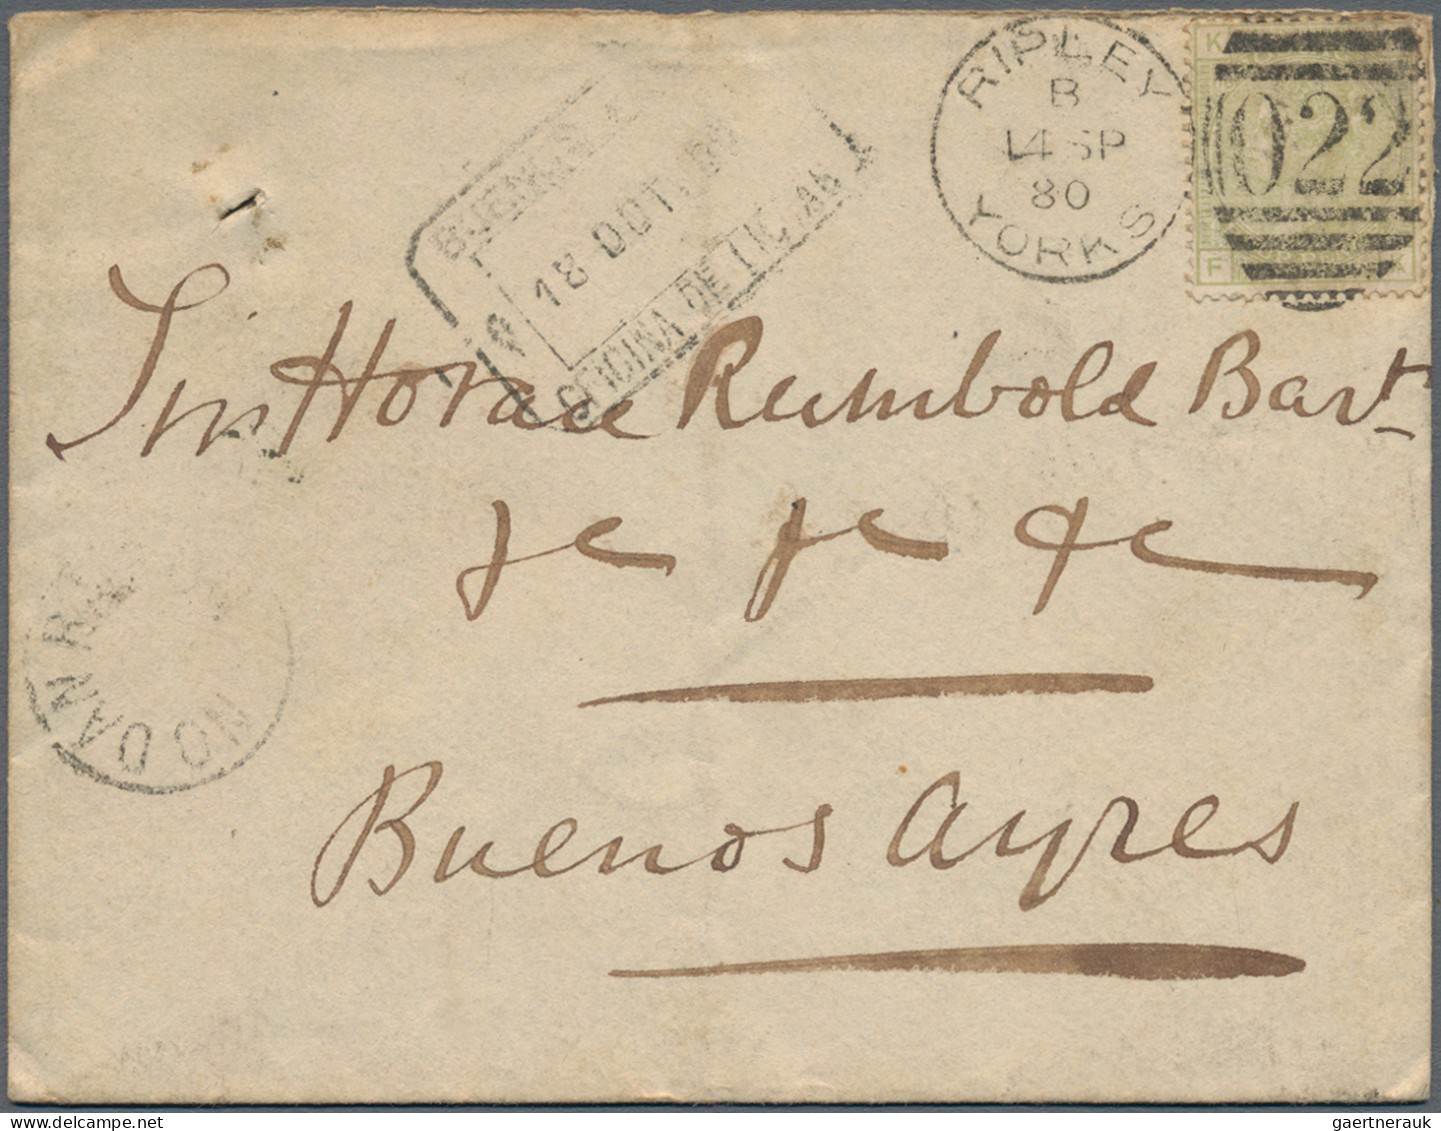 RIPLEY
B
14 SP
80
YORKS
K
022
F
BUENOS
18 OCT.
OFICINA DE
Sir Horace Rumbold Bart
&c &c &c
Buenos Ayres
NO DAN
gaertnerauk